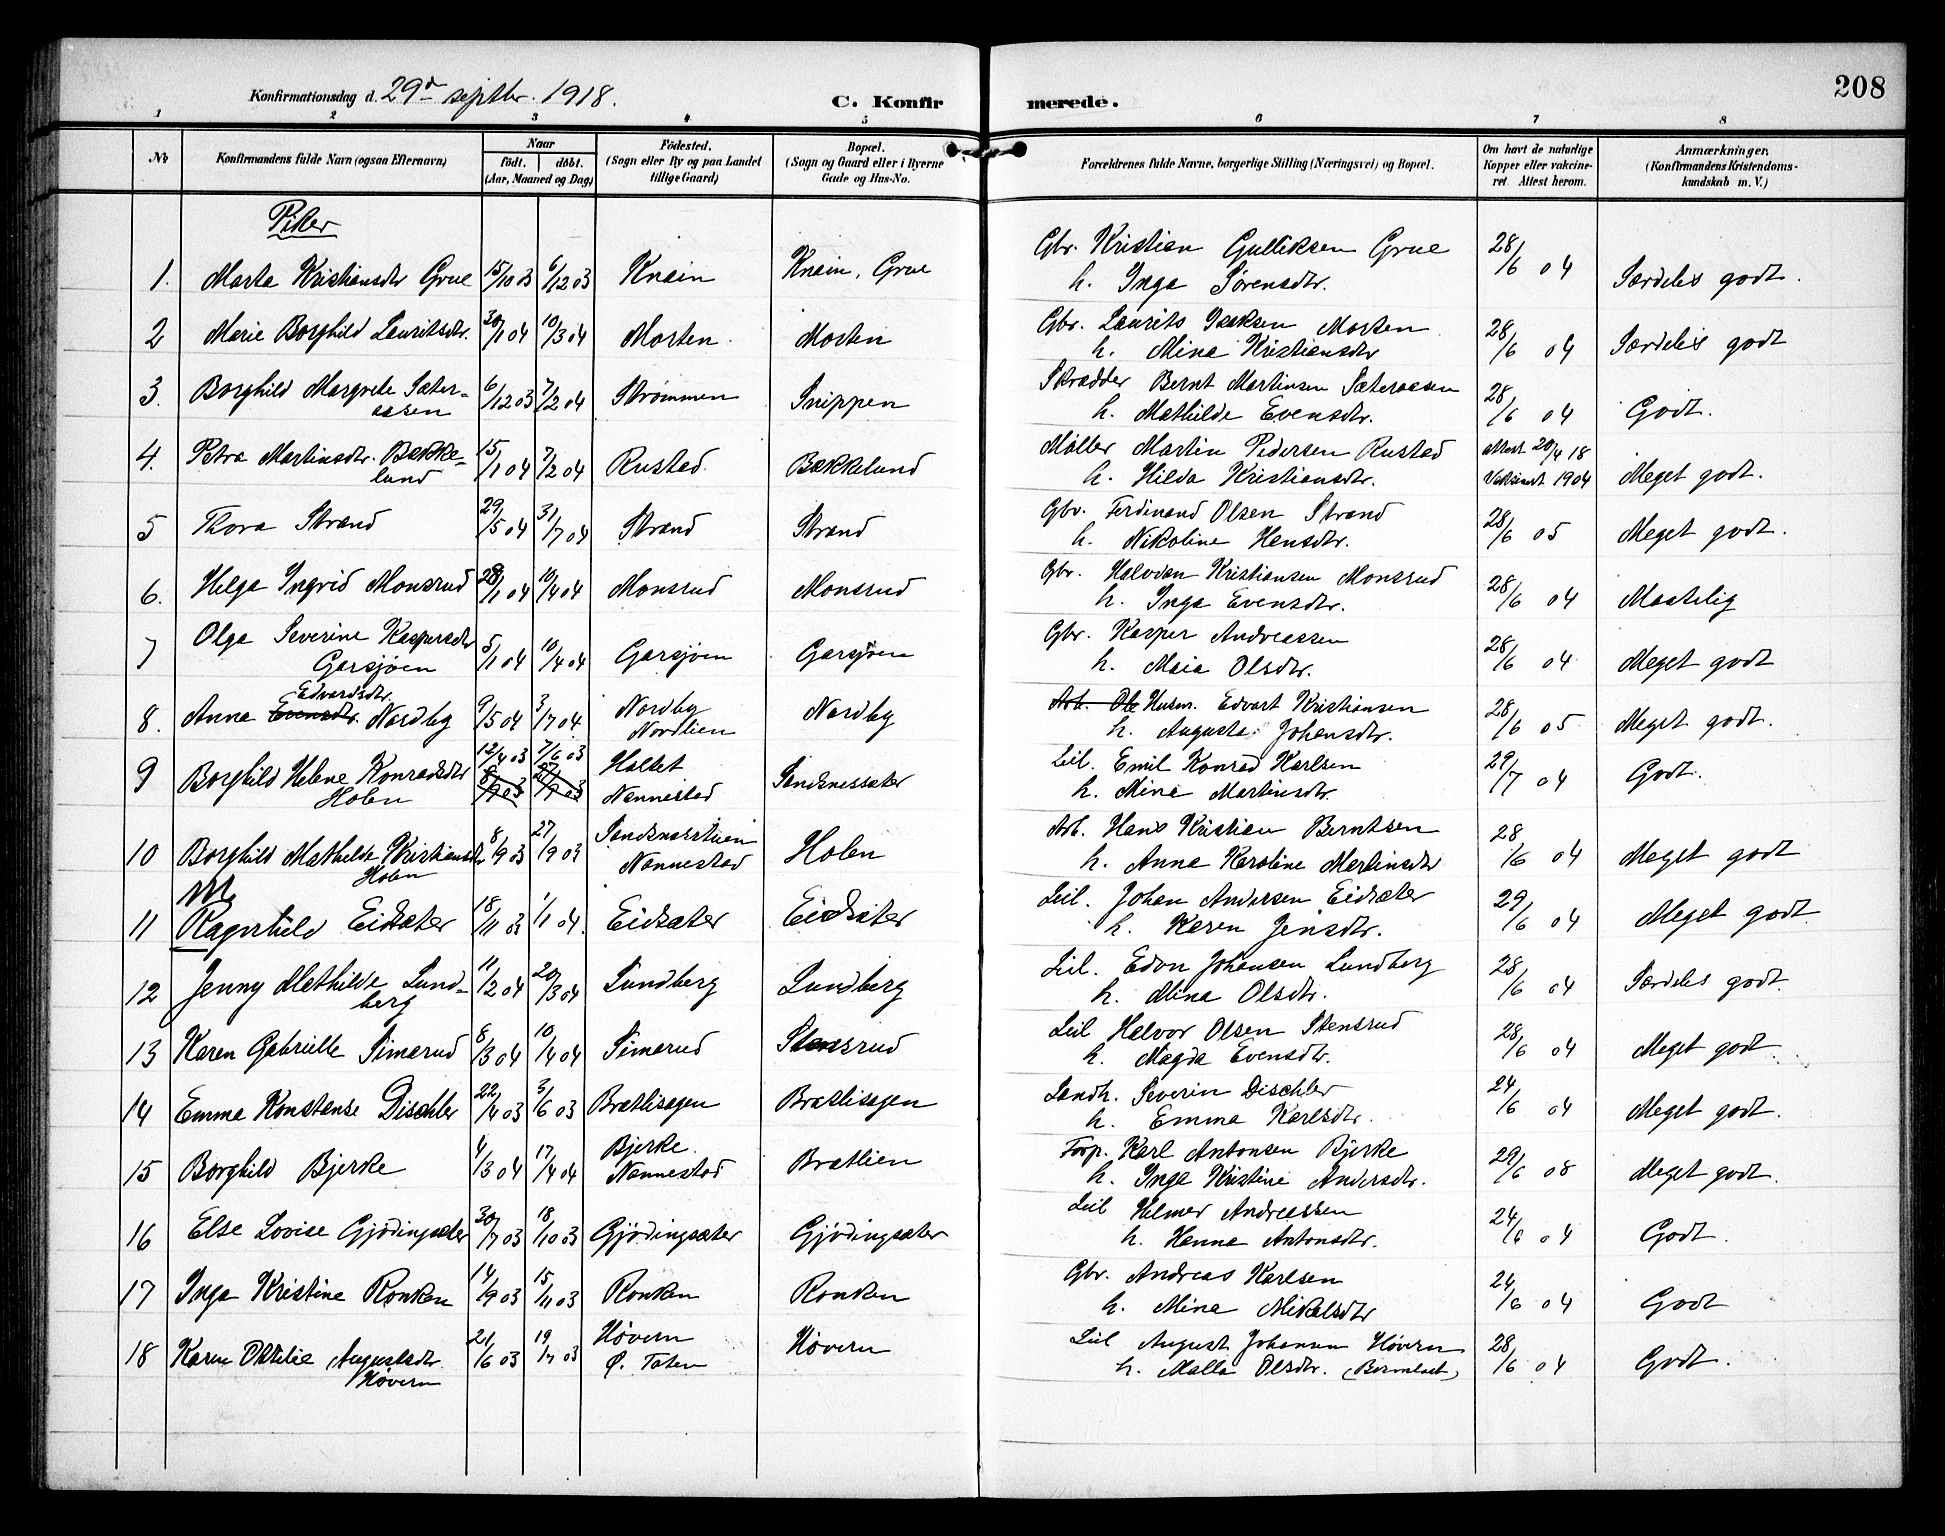 208
Konfirmationsdag d. 29de septbr. 1918.
C. Konfirmerede.
1 2 3 4 5 6 7 8
No
Konfirmandens fulde Navn (ogsaa Efternavn)
Naar
födt. döbt.
(Aar, Maaned og Dag)
Födested.
(Sogn eller By og paa Landet
tillige Gaard)
Bopæl.
(Sogn og Gaard eller i Byerne
Gade og Hus-No.
Forældrenes fulde Navne, borgerlige Stilling (Næringsvei) og Bopæl.
Om havt de naturlige
Kopper eller vakcine-
ret. Attest herom.
Anmærkninger.
(Konfirmandens Kristendoms-
kundskab m. V.)
Piker
1. Marta Kristiansdtr Grue 15/10 03 6/12 03 Knain Knain, Grue Gbr. Kristian Gulliksen Grue 28/6 04 Særdeles godt.
h. Inga Sørensdtr.
2 Marie Borghild Lauritsdtr. 30/1 04 10/3 04 Morten Morten Gbr. Laurits Isaksen Morten 28/6 04 Særdeles godt
h. Mina Kristiansdtr
3. Borghild Margrete Sæter- 6/12 03 7/2 04 Strømmen Snippen Skrædder Bernt Martinsen Sæteraasen 28/6 04 Godt.
aasen h. Mathilde Evensdtr.
4. Petra Martinsdtr. Bække- 15/1 04 7/2 04 Rustad Bækkelund Møller Martin Pedersen Rustad attest 20/4 18
lund h. Hilda Kristiansdtr. Vaksinert 1904 Meget godt.
5 Thora Strand 29/5 04 31/7 04 Strand Strand Gbr. Ferdinand Olsen Strand 28/6 05 Meget godt.
h. Nikoline Hansdtr.
6. Helga Ingrid Monsrud 28/1 04 10/4 04 Monsrud Monsrud Gbr. Halvdan Kristiansen Monsrud 28/6 04 Maatelig
h. Inga Evensdtr.
7 Olga Severine Kaspersdtr 5/1 04 10/4 04 Garsjøen Garsjøen Gbr. Kasper Andreassen 28/6 04 Meget godt
Garsjøen h. Maia Olsdtr.
Edvardsdtr.
8. Anna Evensdtr. Nordby 9/5 04 3/7 04 Nordby Nordby Arb. Ole Husm. Edvart Kristiansen 28/6 05 Meget godt.
Nordlien h. Augusta Johansdtr.
9 Borghild Helene Konradsdtr 12/4 03 7/6 03 Holtet Sandsnessæter Leil. Emil Konrad Karlsen 29/7 04 Godt.
Holen 8/9 03 27/9 03 Nannestad h. Mina Martinsdtr.
10 Borghild Mathilde Kristiansdtr 8/9 03 27/9 03 Sandsnesstuen Holen Arb. Hans Kristian Berntsen 28/6 04 Meget godt
Holen Nannestad h. Anna Karoline Martinsdtr
11 Ragnhild Eidsæter 18/11 03 1/1 04. Eidsæter Eidsæter Leil. Johan Andersen Eidsæter 29/6 04 Meget godt
h. Karen Jensdtr.
12 Jenny Mathilde Lund- 11/2 04 20/3 04 Lundberg Lundberg Leil. Edon Johansen Lundberg 28/6 04 Særdeles godt.
berg h. Mina Olsdtr.
13 Karen Gabrielle Simarud 8/3 04 10/4 04 Simarud Stensrud Leil Halvor Olsen Stensrud 28/6 04 Meget godt.
h. Magda Evensdtr.
14 Emma Konstanse Dischler 22/4 03 3/6 03 Brattisagen Brattisagen Landh. Severin Dischler 24/6 04 Meget godt.
h. Emma Karlsdtr.
15 Borghild Bjerke 4/3 04 17/4 04 Bjerke. Brattlien Forp. Karl Antonsen Bjerke 29/6 08 Meget godt.
Nannestad h. Inga Kristine Andersdtr.
16 Else Lovise Gjødingsæter 30/7 03 18/10 03 Gjødingsæter Gjødingsæter Leil Helmer Andreassen 24/6 04 Godt.
h. Hanna Antonsdtr.
17 Inga Kristine Ronken 14/9 03 15/11 03 Ronken Ronken Gbr. Andreas Karlsen 24/6 04 Godt
h. Mina Mikalsdtr
18 Karen Ottilie Augustsdtr. 21/6 03 19/7 03 Høvern Høvern Leil August Johannsen Høvern 28/6 04 Godt.
Høvern Ø. Toten h. Malla Olsdtr.